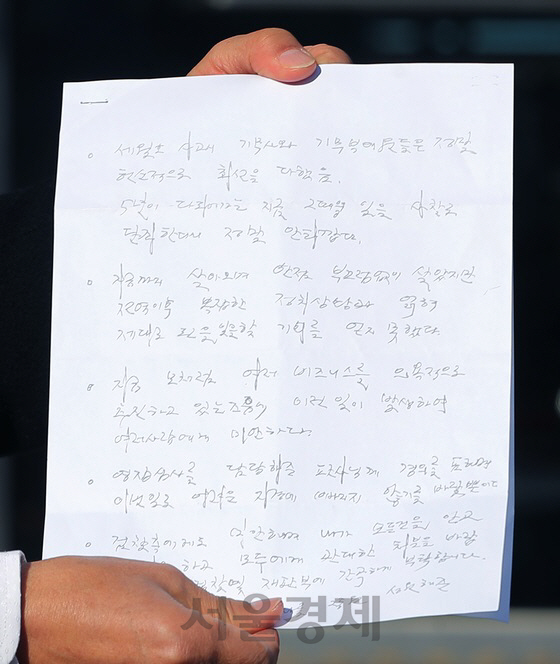 ◦ 세월호 사고시 기무사와 기무부대원들은 정말
헌신적으로 최선을 다했음.
5년이 다 되어가는 지금 그때의 일을 사찰로
단죄한다니 정말 안타깝다.
◦ 지금까지 살아오며 한점 부끄럼없이 살았지만
전역이후 복잡한 정치상황과 얽혀
제대로 된 일을할 기회를 얻지 못했다.
◦ 지금 모처럼 여러 비즈니스를 의욕적으로
추진하고 있는데 이런 일이 발생하여
여러사람에게 미안하다.
◦ 영장심사를 담당해준 판사님께 경의를 표하며
이번일로 어려운 지경에 빠지지 않기를 바랄뿐이다
◦ 검찰측에게도 미안하며 내가 모든것을 안고
하고 모두에게 관대한 처분을 바랍
재판부에 간곡하게 부탁합니다.
서울경제